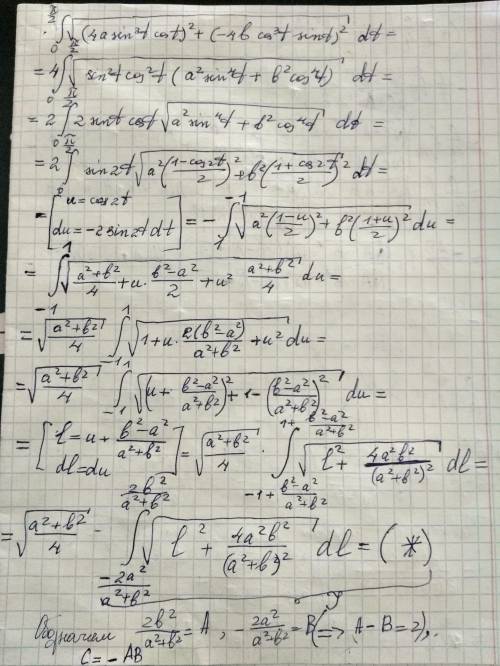 ∫₀^{π/2} √((4a sin³t cost)² + (-4b cos³t sint)²) dt =
= 4 ∫₀^{π/2} √(sin²t cos²t (a² sin⁴t + b² cos⁴t)) dt =
= 2 ∫₀^{π/2} 2 sint cost √(a² sin⁴t + b² cos⁴t) dt =
= 2 ∫₀^{π/2} sin2t √(a² ((1-cos2t)/2)² + b² ((1+cos2t)/2)²) dt =
= [u = cos2t, du = -2 sin2t dt] = - ∫₁^{-1} √(a² ((1-u)/2)² + b² ((1+u)/2)²) du =
= ∫₋₁^{1} √((a²+b²)/4 + u · (b²-a²)/2 + u² (a²+b²)/4) du =
= √((a²+b²)/4) ∫₋₁^{1} √(1 + u · 2(b²-a²)/(a²+b²) + u²) du =
= √((a²+b²)/4) ∫₋₁^{1} √((u + (b²-a²)/(a²+b²))² + 1 - ((b²-a²)/(a²+b²))²) du =
= [l = u + (b²-a²)/(a²+b²), dl = du] = √((a²+b²)/4) · ∫_{-1+(b²-a²)/(a²+b²)}^{1+(b²-a²)/(a²+b²)} √(l² + 4a²b²/(a²+b²)²) dl =
= √((a²+b²)/4) · ∫_{-2a²/(a²+b²)}^{2b²/(a²+b²)} √(l² + 4a²b²/(a²+b²)²) dl = (*)
Обозначим 2b²/(a²+b²) = A, -2a²/(a²+b²) = B (=> A-B=2),
C = -AB